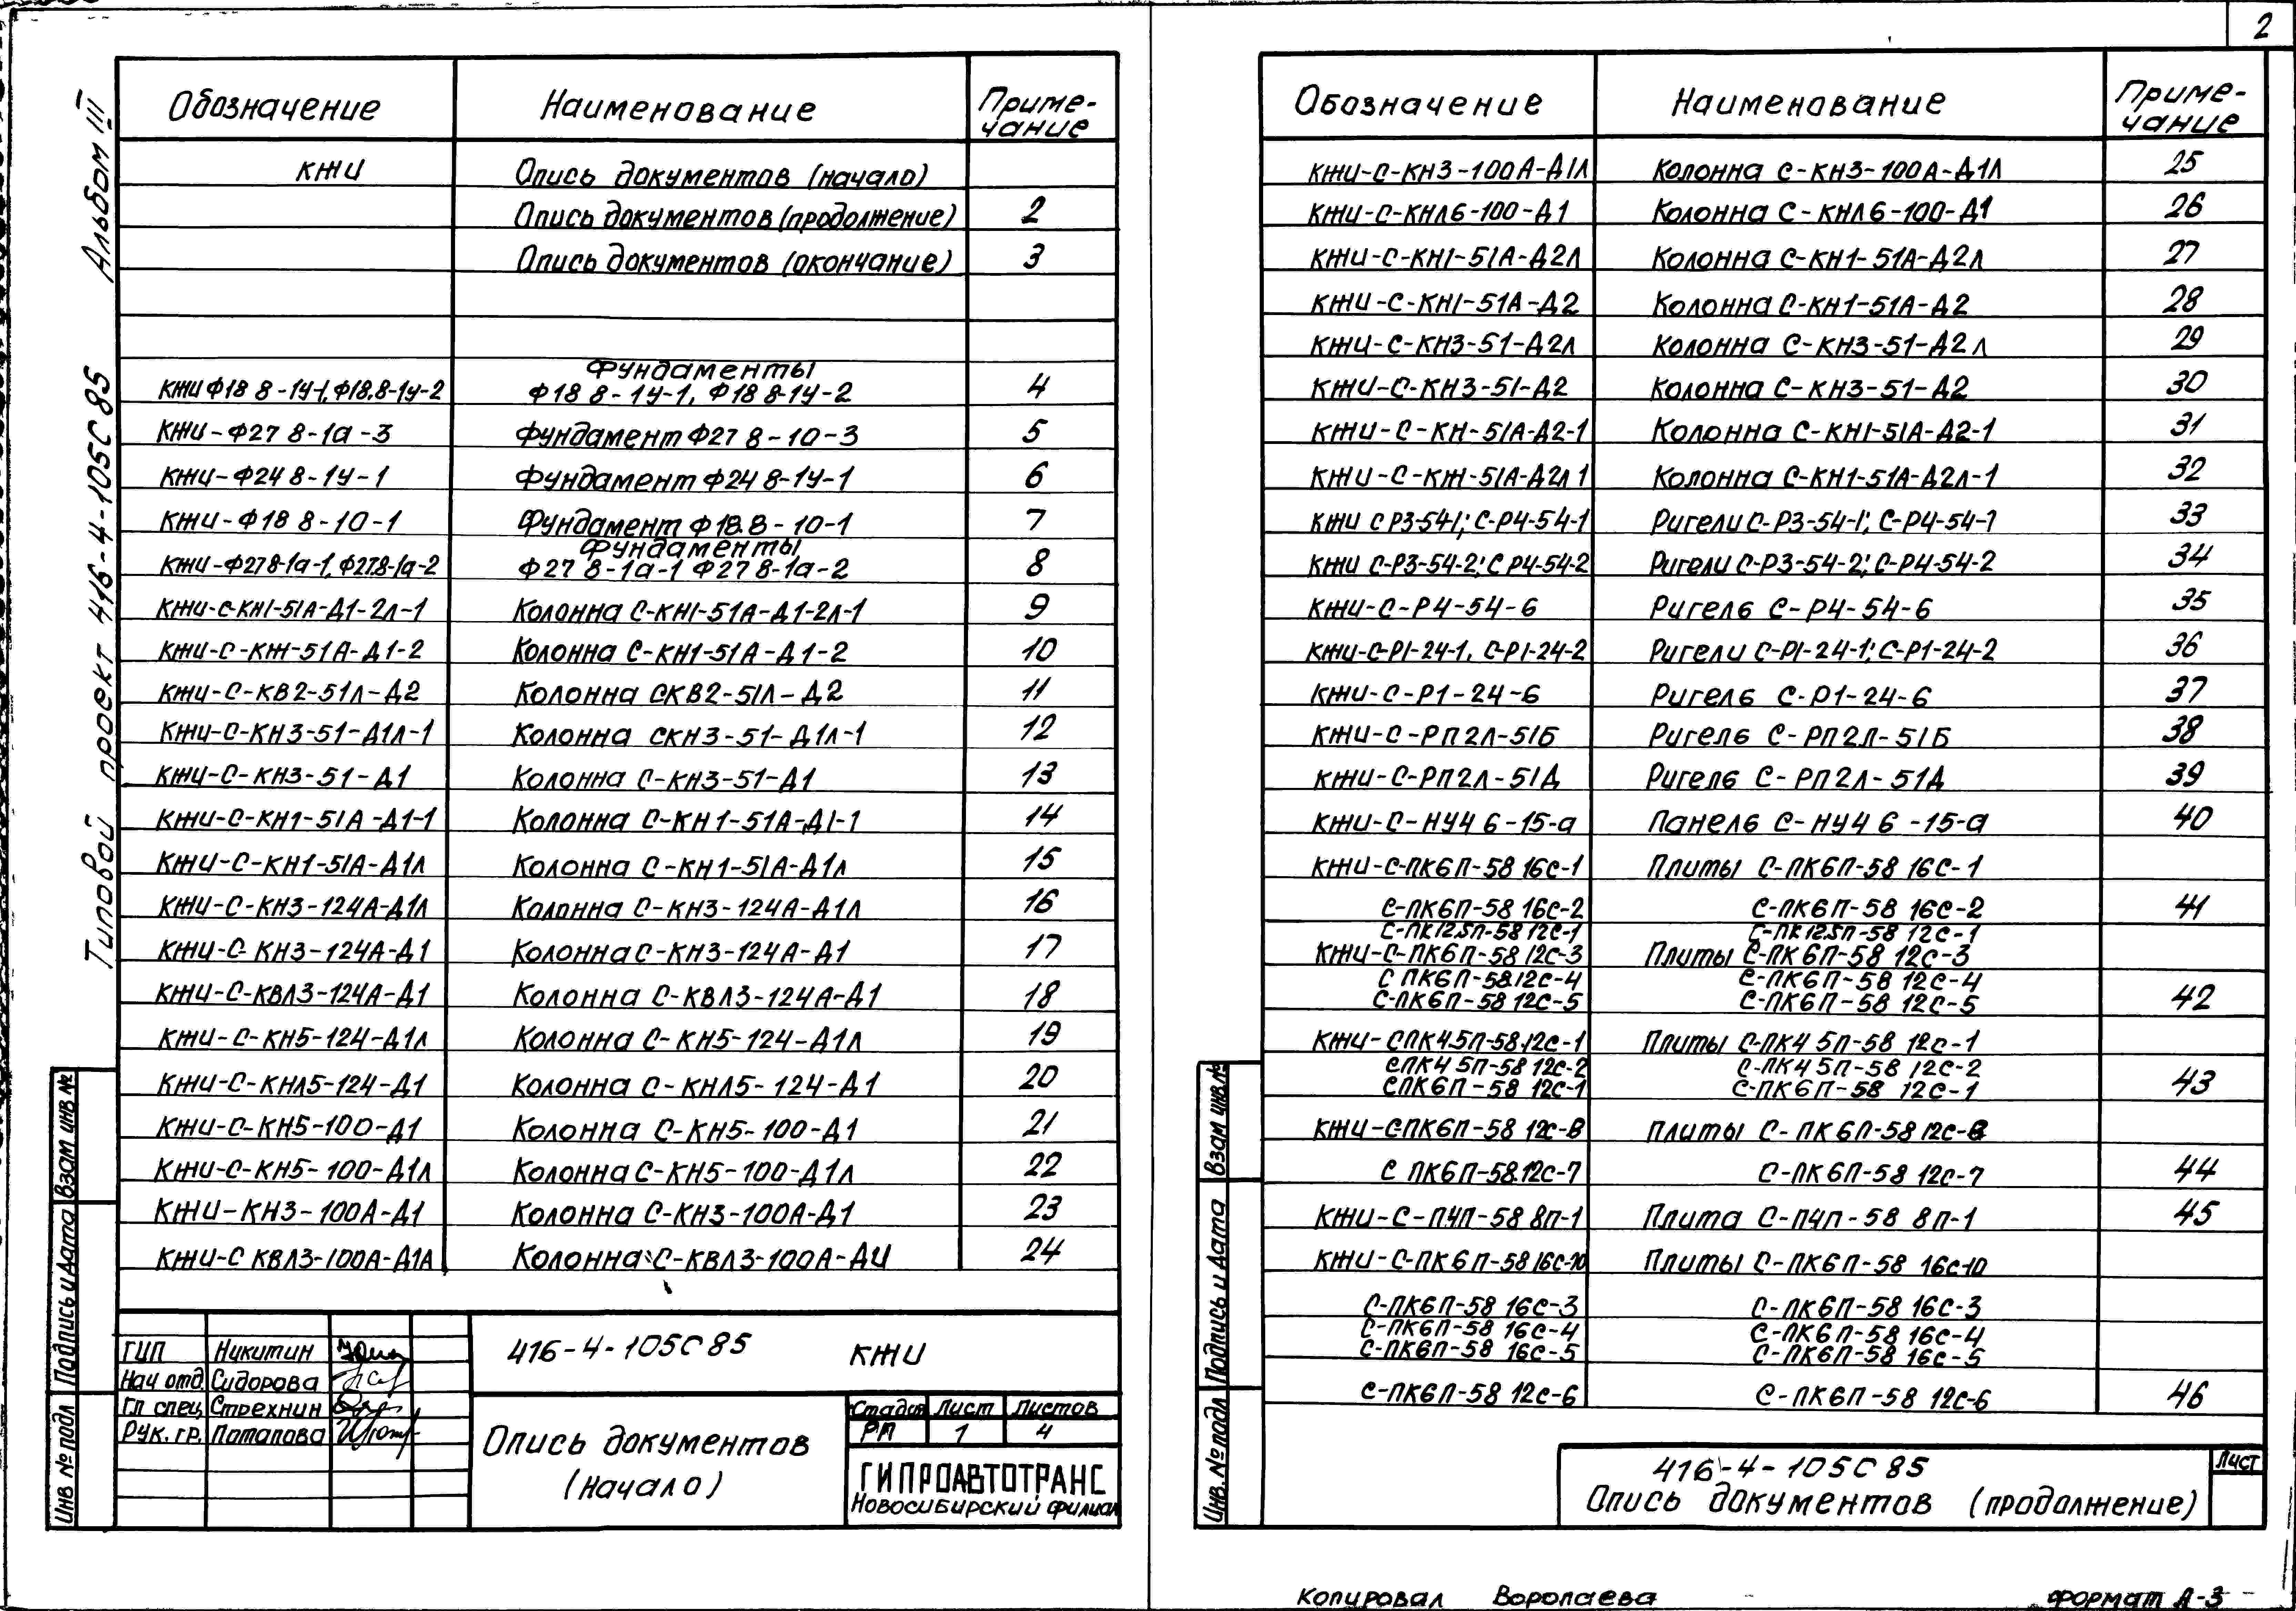 2
Альбом III
Типовой проект 416-4-105С85
Обозначение Наименование Приме-
чание
КЖИ Опись документов (начало)
Опись документов (продолжение) 2
Опись документов (окончание) 3
Фундаменты
КЖИ Ф18 8-1у-1, Ф18.8-1у-2 Ф18 8-1у-1, Ф18 8-1у-2 4
КЖИ-Ф27 8-1а-3 Фундамент Ф27 8-1а-3 5
КЖИ-Ф24 8-1у-1 Фундамент Ф24 8-1у-1 6
КЖИ-Ф18 8-10-1 Фундамент Ф18.8-10-1 7
Фундаменты
КЖИ-Ф27 8-1а-1, Ф27.8-1а-2 Ф27 8-1а-1 Ф27 8-1а-2 8
КЖИ-С-КН1-51А-Д1-2Л-1 Колонна С-КН1-51А-Д1-2Л-1 9
КЖИ-С-КН1-51А-Д1-2 Колонна С-КН1-51А-Д1-2 10
КЖИ-С-КВ2-51Л-Д2 Колонна СКВ2-51Л-Д2 11
КЖИ-С-КН3-51-Д1Л-1 Колонна СКН3-51-Д1Л-1 12
КЖИ-С-КН3-51-Д1 Колонна С-КН3-51-Д1 13
КЖИ-С-КН1-51А-Д1-1 Колонна С-КН1-51А-Д1-1 14
КЖИ-С-КН1-51А-Д1Л Колонна С-КН1-51А-Д1Л 15
КЖИ-С-КН3-124А-Д1Л Колонна С-КН3-124А-Д1Л 16
КЖИ-С-КН3-124А-Д1 Колонна С-КН3-124А-Д1 17
КЖИ-С-КВЛ3-124А-Д1 Колонна С-КВЛ3-124А-Д1 18
КЖИ-С-КН5-124-Д1Л Колонна С-КН5-124-Д1Л 19
КЖИ-С-КНЛ5-124-Д1 Колонна С-КНЛ5-124-Д1 20
КЖИ-С-КН5-100-Д1 Колонна С-КН5-100-Д1 21
КЖИ-С-КН5-100-Д1Л Колонна С-КН5-100-Д1Л 22
КЖИ-КН3-100А-Д1 Колонна С-КН3-100А-Д1 23
КЖИ-С КВЛ3-100А-Д1А Колонна С-КВЛ3-100А-ДИ 24
Взам инв №
Подпись и дата
Инв № подл
ГИП Никитин
Нач отд. Сидорова
Гл спец. Стрехнин
Рук. гр. Потапова
416-4-105С85 КЖИ
Опись документов
(начало)
Стадия Лист Листов
РП 1 4
ГИПРОАВТОТРАНС
Новосибирский филиал
Обозначение Наименование Приме-
чание
КЖИ-С-КН3-100А-Д1Л Колонна С-КН3-100А-Д1Л 25
КЖИ-С-КНЛ6-100-Д1 Колонна С-КНЛ6-100-Д1 26
КЖИ-С-КН1-51А-Д2Л Колонна С-КН1-51А-Д2Л 27
КЖИ-С-КН1-51А-Д2 Колонна С-КН1-51А-Д2 28
КЖИ-С-КН3-51-Д2Л Колонна С-КН3-51-Д2Л 29
КЖИ-С-КН3-51-Д2 Колонна С-КН3-51-Д2 30
КЖИ-С-КН-51А-Д2-1 Колонна С-КН1-51А-Д2-1 31
КЖИ-С-КН-51А-Д2Л 1 Колонна С-КН1-51А-Д2Л-1 32
КЖИ С Р3-54-1; С-Р4-54-1 Ригели С-Р3-54-1; С-Р4-54-1 33
КЖИ С-Р3-54-2; С Р4-54-2 Ригели С-Р3-54-2; С-Р4-54-2 34
КЖИ-С-Р4-54-6 Ригель С-Р4-54-6 35
КЖИ-С-Р1-24-1, С-Р1-24-2 Ригели С-Р1-24-1; С-Р1-24-2 36
КЖИ-С-Р1-24-6 Ригель С-Р1-24-6 37
КЖИ-С-РП2Л-51Б Ригель С-РП2Л-51Б 38
КЖИ-С-РП2Л-51Д Ригель С-РП2Л-51Д 39
КЖИ-С-НУ4 6-15-а Панель С-НУ4 6-15-а 40
КЖИ-С-ПК6П-58 16С-1 Плиты С-ПК6П-58 16С-1
С-ПК6П-58 16С-2 С-ПК6П-58 16С-2 41
С-ПК12.5П-58 12С-1 С-ПК12.5П-58 12С-1
КЖИ-С-ПК6П-58 12С-3 Плиты С-ПК6П-58 12С-3
С ПК6П-58.12С-4 С-ПК6П-58 12С-4
С-ПК6П-58 12С-5 С-ПК6П-58 12С-5 42
КЖИ-СПК4 5П-58.12С-1 Плиты С-ПК4 5П-58 12С-1
СПК4 5П-58 12С-2 С-ПК4 5П-58 12С-2
СПК6П-58 12С-1 С-ПК6П-58 12С-1 43
КЖИ-СПК6П-58 12С-8 Плиты С-ПК6П-58 12С-8
С ПК6П-58.12С-7 С-ПК6П-58 12С-7 44
КЖИ-С-П4П-58 8П-1 Плита С-П4П-58 8П-1 45
КЖИ-С-ПК6П-58 16С-10 Плиты С-ПК6П-58 16С-10
С-ПК6П-58 16С-3 С-ПК6П-58 16С-3
С-ПК6П-58 16С-4 С-ПК6П-58 16С-4
С-ПК6П-58 16С-5 С-ПК6П-58 16С-5
С-ПК6П-58 12С-6 С-ПК6П-58 12С-6 46
Взам инв.№
Подпись и дата
Инв. № подл
416-4-105С85
Опись документов (продолжение)
Лист
Копировал Воропаева
Формат А-3